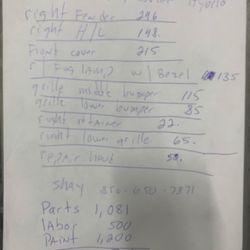 Hybrid
right Fender 296
right H/L 198.
Front cover 215
r Fog lamp w/ Bezel 135
grille middle bumper 115
grille lower bumper 85
right retainer 22.
right lower grille 65.
50.
Shay 856-650-7371
Parts 1,081
labor 500
Paint 1,200